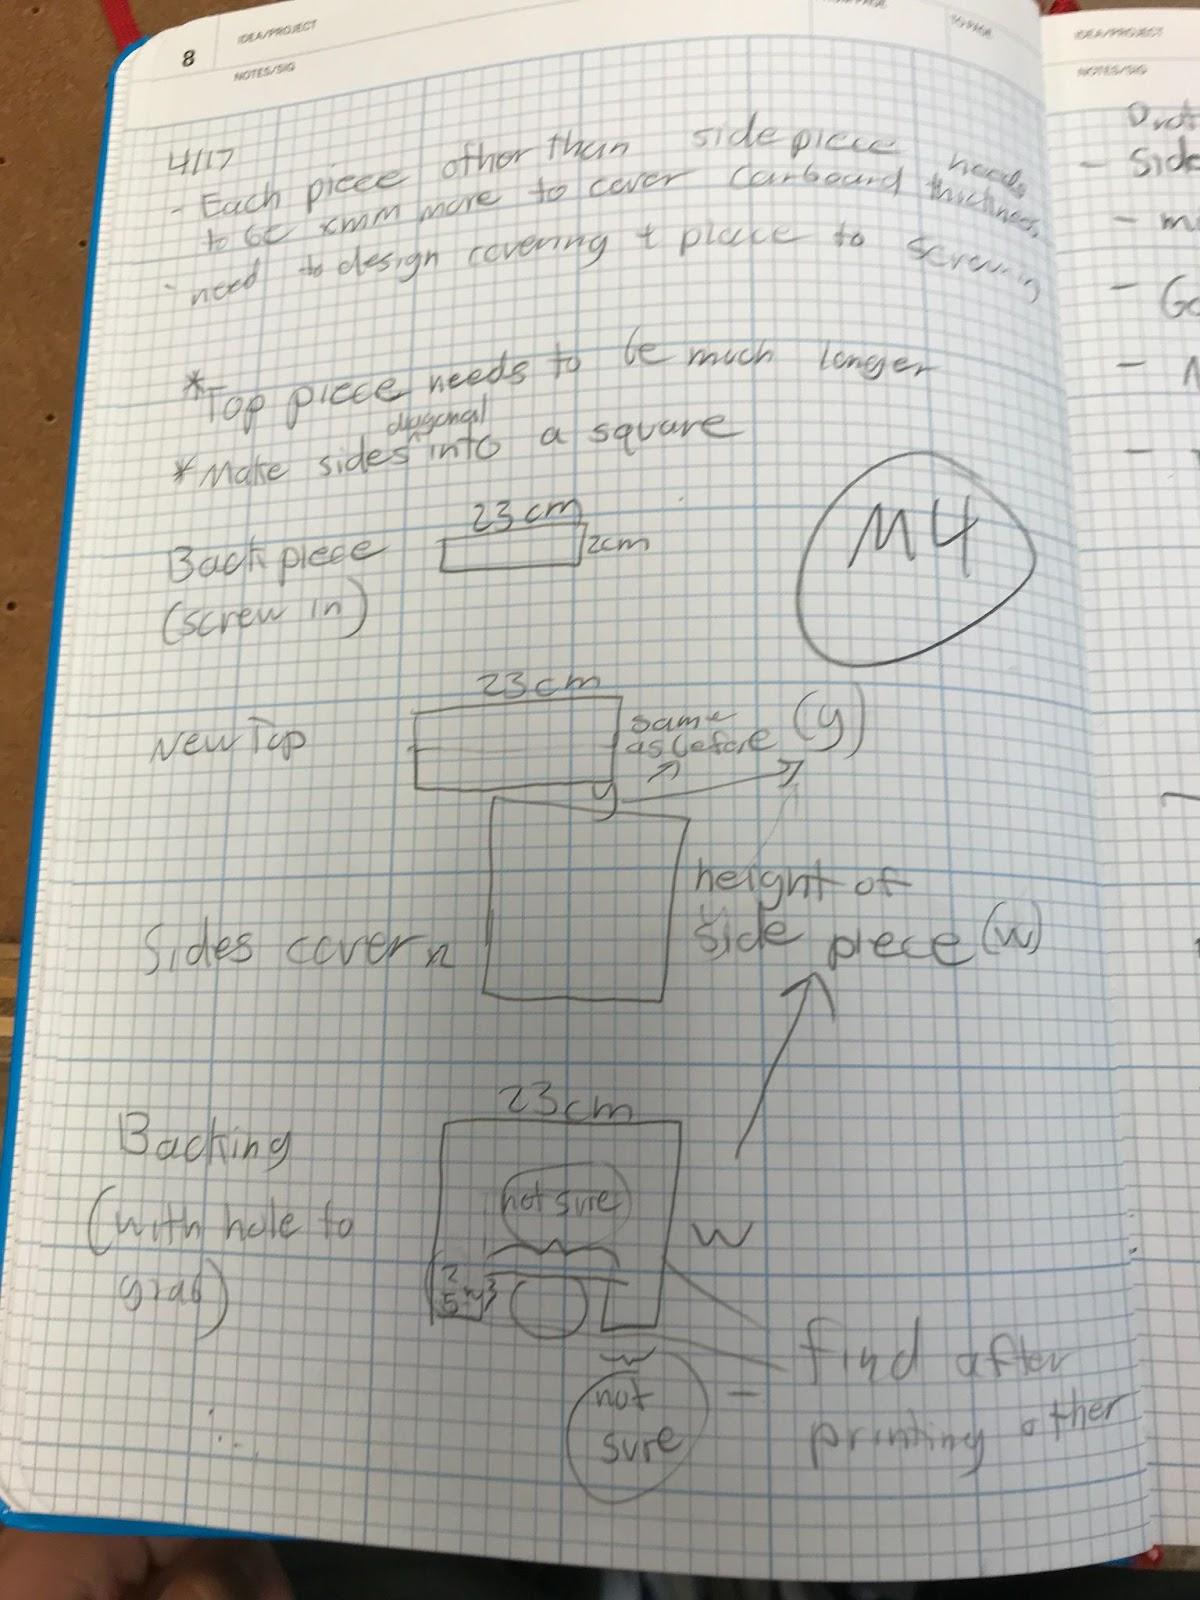 8
IDEA/PROJECT
NOTES/SIG
TO PAGE
4/17
- Each piece other than side piece needs
to be xmm more to cover carboard thickness.
- need to design covering + place to screw in
*Top piece needs to be much longer
diagonal
*Make sides ^ into a square
23cm
Back piece
2cm
(screw in)
M4
23cm
New Top
same
as before (y)
y
height of
Sides cover
side piece (w)
23cm
Backing
not sure
(with hole to
w
grab)
find after
not
sure
printing other
IDEA/PROJECT
NOTES/SIG
- Side